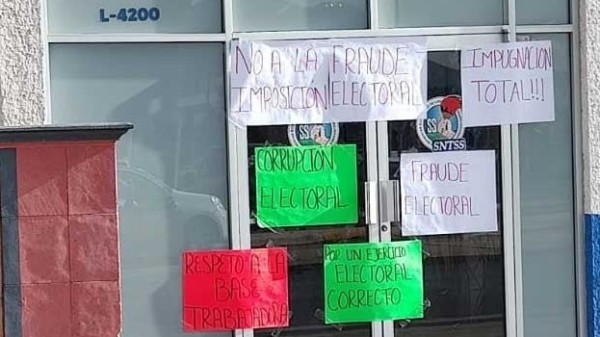 L-4200
NO A LA
IMPOSICION
FRAUDE
ELECTORAL
IMPUGNACION
TOTAL!!!
SS
SS
SNTSS
CORRUPCION
ELECTORAL
FRAUDE
ELECTORAL
RESPETO A LA
BASE
TRABAJADORA
POR UN EJERCICIO
ELECTORAL
CORRECTO